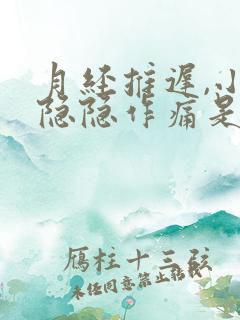 月经推迟,小
隐隐作痛是
雁柱十三弦
未经同意禁止转载